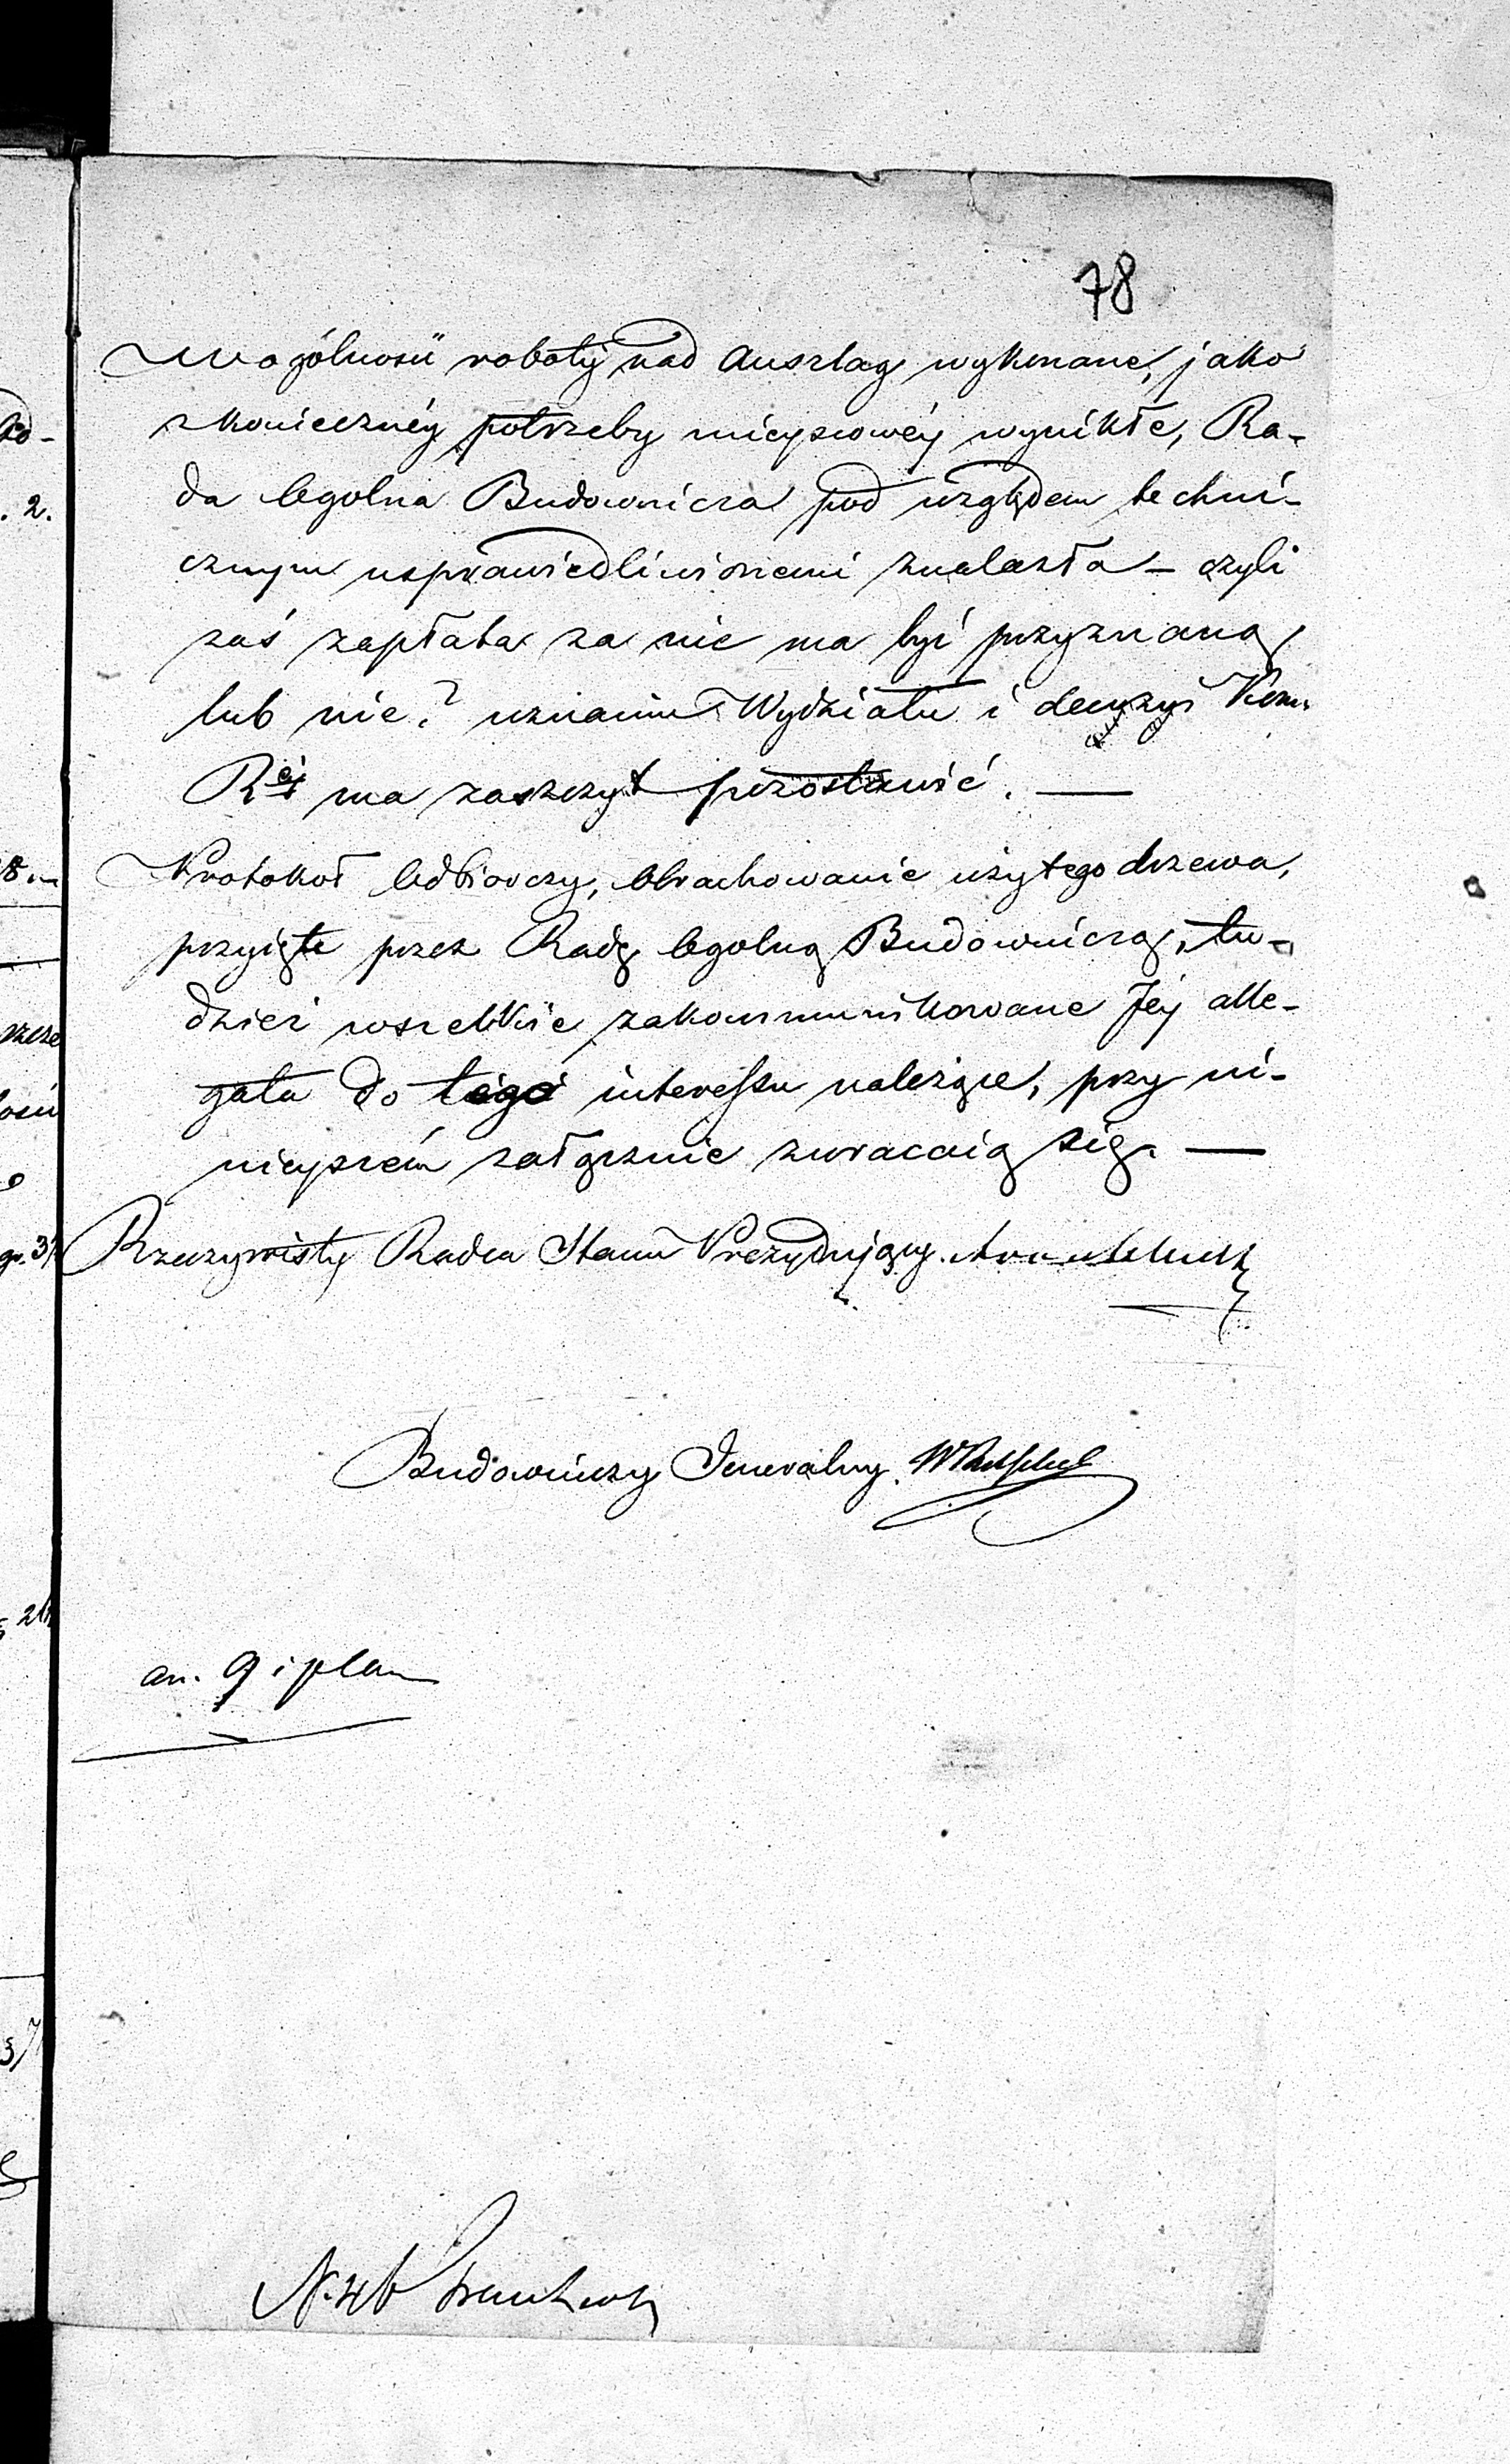 78
W ogólności roboty nad Anszlag wykonane, jako
z konieczney potrzeby mieyscowéy wynikłe, Ra-
da Ogolna Budownicza pod względem techni-
cznym usprawiedliwionemi znalazła – czyli
zaś zapłata za nie ma być przyznaną
lub nie? uznaniu Wydziału i decyzyi Kom.
Rei ma zaszczyt pozostawić. —
Protokoł Odbiorczy, Obrachowanie użytego drzewa,
przyięte przez Radę Ogolną Budowniczą, tu-
dzież wszelkie zakommunikowane Jéy alle-
gata do tego interessu należące, przy ni-
nieyszém załącznie zwracaią się. —
Rzeczywisty Radca Stanu Prezydujący.
Budowniczy Jeneralny.
an. 9 i plan